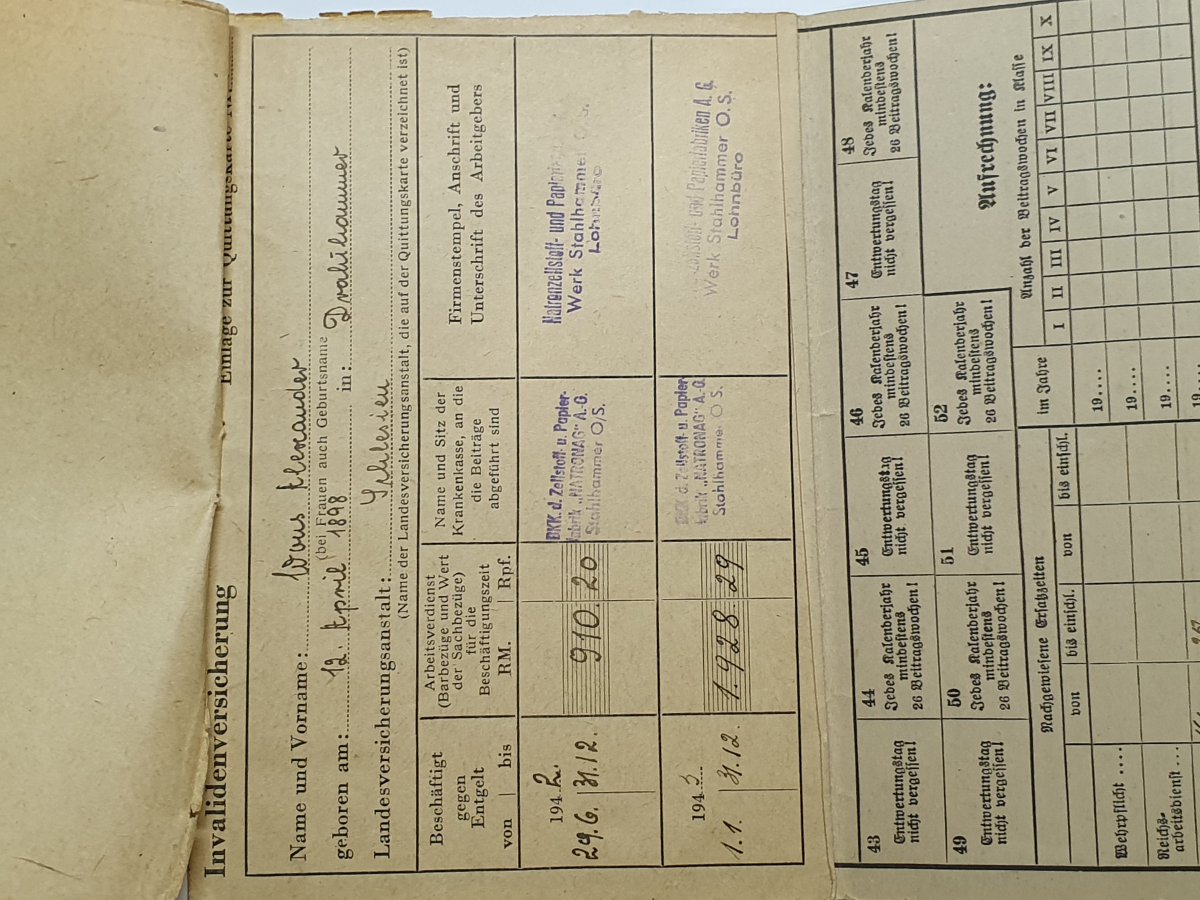 Invalidenversicherung
Einlage zur Quittungskarte
Name und Vorname: Wons Alexander
(bei Frauen auch Geburtsname
geboren am: 12. April 1898 in: Drahthammer
Landesversicherungsanstalt: Schlesien
(Name der Landesversicherungsanstalt, die auf der Quittungskarte verzeichnet ist)
Beschäftigt
gegen
Entgelt
von | bis
Arbeitsverdienst
(Barbezüge und Wert
der Sachbezüge)
für die
Beschäftigungszeit
RM. | Rpf.
Name und Sitz der
Krankenkasse, an die
die Beiträge
abgeführt sind
Firmenstempel, Anschrift und
Unterschrift des Arbeitgebers
194 2.
29.6. 31.12.
910.20
BKK. d. Zellstoff- u. Papier-
fabrik „NATRONAG" A.-G.
Stahlhammer O/S.
Natronzellstoff- und Papier
Werk Stahlhammer O.S.
Lohnbüro
194 3
1.1. 31.12.
1.928.29
BKK d. Zellstoff- u. Papier-
fabrik „NATRONAG" A.-G.
Stahlhammer O S.
zellstoff- und Papierfabriken A. G.
Werk Stahlhammer O.S.
Lohnbüro
43
Entwertungstag
nicht vergessen!
44
Jedes Kalenderjahr
mindestens
26 Beitragswochen!
45
Entwertungstag
nicht vergessen!
46
Jedes Kalenderjahr
mindestens
26 Beitragswochen!
47
Entwertungstag
nicht vergessen!
48
Jedes Kalenderjahr
mindestens
26 Beitragswochen!
49
Entwertungstag
nicht vergessen!
50
Jedes Kalenderjahr
mindestens
26 Beitragswochen!
51
Entwertungstag
nicht vergessen!
52
Jedes Kalenderjahr
mindestens
26 Beitragswochen!
Aufrechnung:
Nachgewiesene Ersatzzeiten
von | bis einschl. | von | bis einschl.
im Jahre
Anzahl der Beitragswochen in Klasse
I II III IV V VI VII VIII IX X
Wehrpflicht ....
19....
Reichs-
arbeitsdienst ...
19....
19....
19....